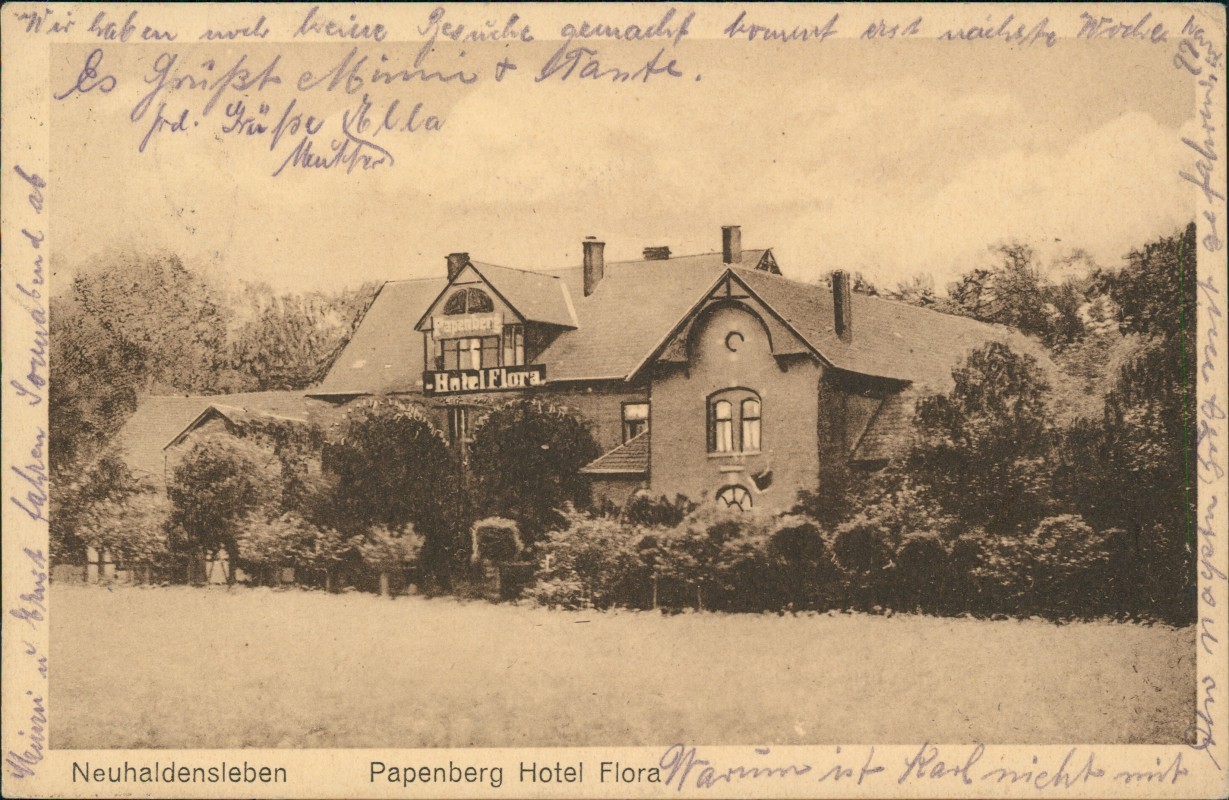 Wir haben noch keine Besuche gemacht kommt erst nächste Woche
Es Grüßt Minni + Tante.
frd. Grüße Ella
Papenberg
Hotel Flora
Minni u Ernst fahren Sonnabend ab
Neuhaldensleben Papenberg Hotel Flora
Warum ist Karl nicht mit
gefahren